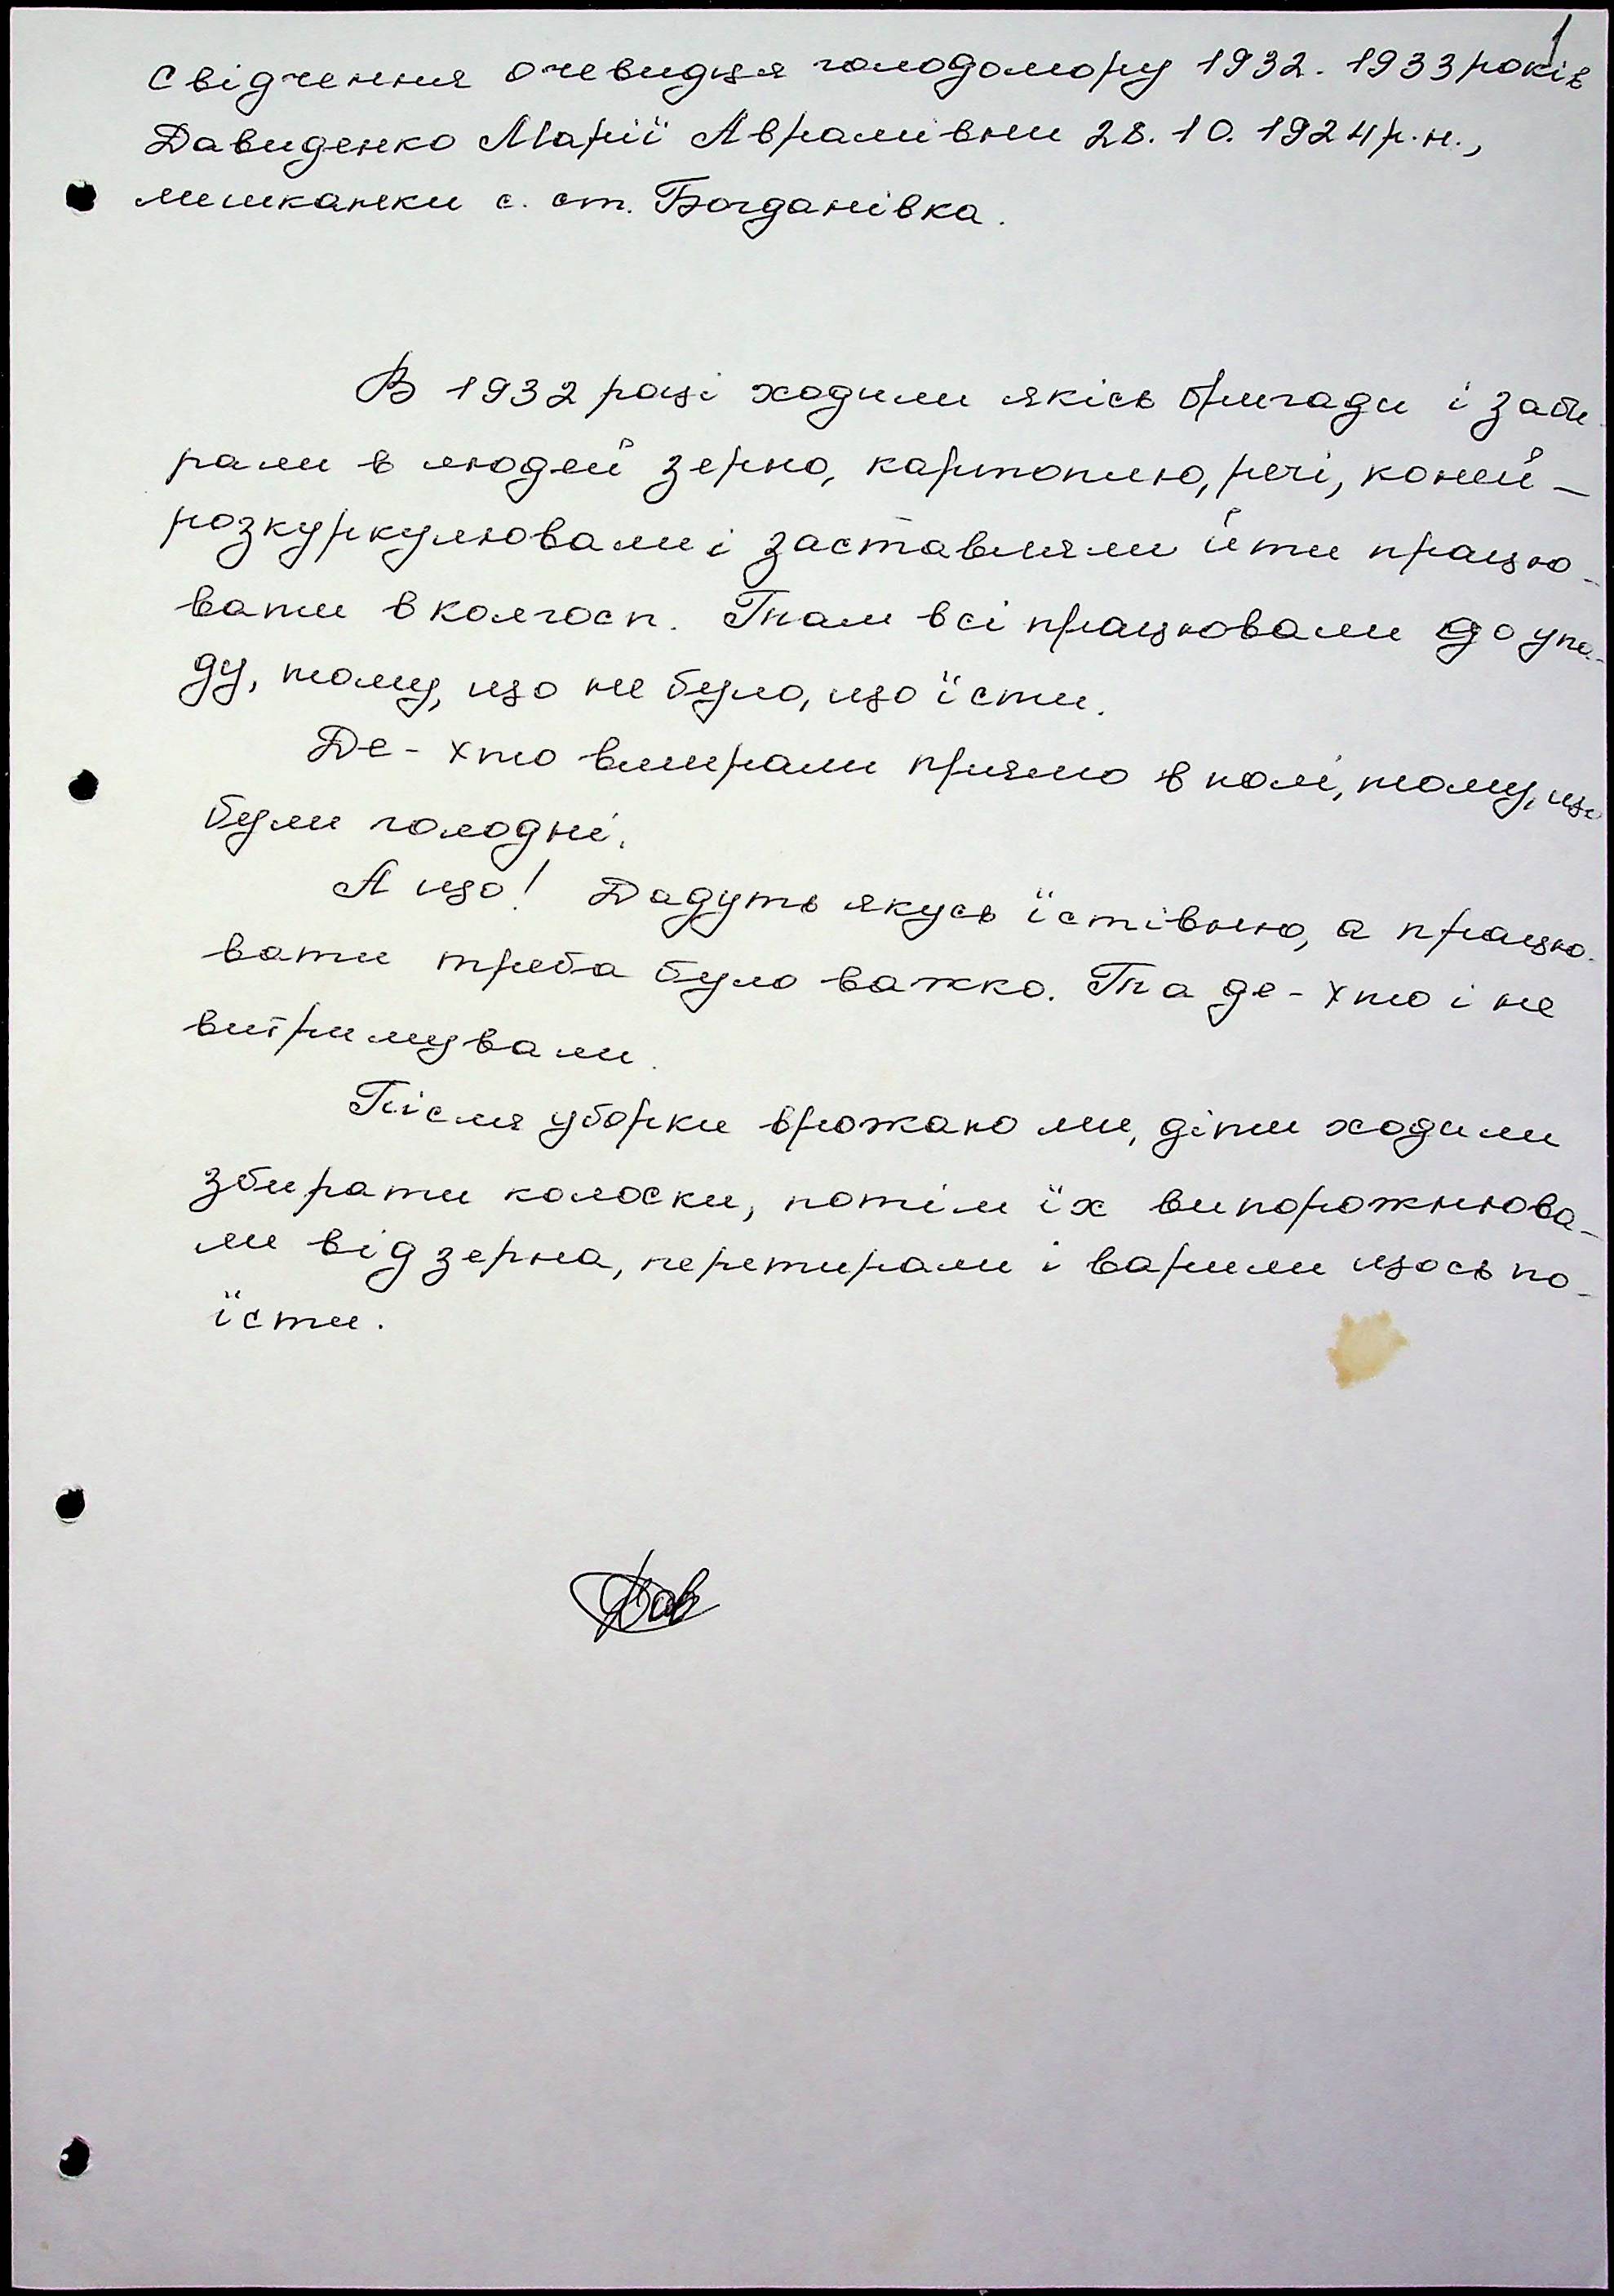 1
Свідчення очевидця голодомору 1932. 1933 років
Давиденко Марії Аврамівни 28.10.1924 р.н.,
мешканки с. ст. Богданівка.
В 1932 році ходили якісь бригади і заби-
рали в людей зерно, картоплю, речі, коней –
розкуркулювали і заставляли йти працю-
вати в колгосп. Там всі працювали до упа-
ду, тому, що не було, що їсти.
Де-хто вмирали прямо в полі, тому, що
були голодні.
А що! Дадуть якусь їстівню, а працю-
вати треба було важко. Та де-хто і не
витримували.
Після уборки врожаю ми, діти ходили
збирати колоски, потім їх випорожнюва-
ли від зерна, перетирали і варили щось по-
їсти.
Дав